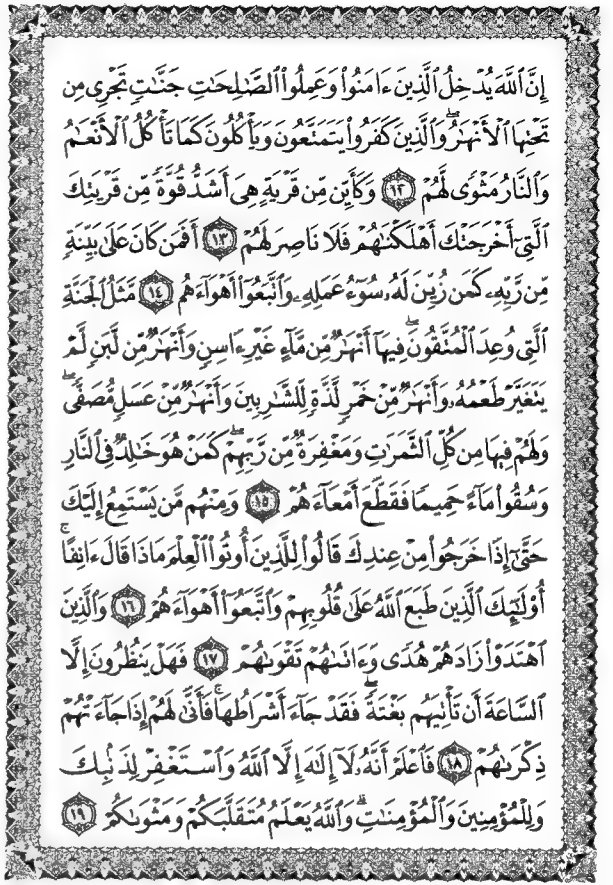 إِنَّ ٱللَّهَ يُدْخِلُ ٱلَّذِينَ ءَامَنُوا۟ وَعَمِلُوا۟ ٱلصَّٰلِحَٰتِ جَنَّٰتٍ تَجْرِى مِن
تَحْتِهَا ٱلْأَنْهَٰرُ ۖ وَٱلَّذِينَ كَفَرُوا۟ يَتَمَتَّعُونَ وَيَأْكُلُونَ كَمَا تَأْكُلُ ٱلْأَنْعَٰمُ
وَٱلنَّارُ مَثْوًى لَّهُمْ ١٢ وَكَأَيِّن مِّن قَرْيَةٍ هِىَ أَشَدُّ قُوَّةً مِّن قَرْيَتِكَ
ٱلَّتِىٓ أَخْرَجَتْكَ أَهْلَكْنَٰهُمْ فَلَا نَاصِرَ لَهُمْ ١٣ أَفَمَن كَانَ عَلَىٰ بَيِّنَةٍ
مِّن رَّبِّهِۦ كَمَن زُيِّنَ لَهُۥ سُوٓءُ عَمَلِهِۦ وَٱتَّبَعُوٓا۟ أَهْوَآءَهُم ١٤ مَّثَلُ ٱلْجَنَّةِ
ٱلَّتِى وُعِدَ ٱلْمُتَّقُونَ ۖ فِيهَآ أَنْهَٰرٌ مِّن مَّآءٍ غَيْرِ ءَاسِنٍ وَأَنْهَٰرٌ مِّن لَّبَنٍ لَّمْ
يَتَغَيَّرْ طَعْمُهُۥ وَأَنْهَٰرٌ مِّنْ خَمْرٍ لَّذَّةٍ لِّلشَّٰرِبِينَ وَأَنْهَٰرٌ مِّنْ عَسَلٍ مُّصَفًّى ۖ
وَلَهُمْ فِيهَا مِن كُلِّ ٱلثَّمَرَٰتِ وَمَغْفِرَةٌ مِّن رَّبِّهِمْ ۖ كَمَنْ هُوَ خَٰلِدٌ فِى ٱلنَّارِ
وَسُقُوا۟ مَآءً حَمِيمًا فَقَطَّعَ أَمْعَآءَهُمْ ١٥ وَمِنْهُم مَّن يَسْتَمِعُ إِلَيْكَ
حَتَّىٰٓ إِذَا خَرَجُوا۟ مِنْ عِندِكَ قَالُوا۟ لِلَّذِينَ أُوتُوا۟ ٱلْعِلْمَ مَاذَا قَالَ ءَانِفًا ۚ
أُو۟لَٰٓئِكَ ٱلَّذِينَ طَبَعَ ٱللَّهُ عَلَىٰ قُلُوبِهِمْ وَٱتَّبَعُوٓا۟ أَهْوَآءَهُمْ ١٦ وَٱلَّذِينَ
ٱهْتَدَوْا۟ زَادَهُمْ هُدًى وَءَاتَىٰهُمْ تَقْوَىٰهُمْ ١٧ فَهَلْ يَنظُرُونَ إِلَّا
ٱلسَّاعَةَ أَن تَأْتِيَهُم بَغْتَةً ۖ فَقَدْ جَآءَ أَشْرَاطُهَا ۚ فَأَنَّىٰ لَهُمْ إِذَا جَآءَتْهُمْ
ذِكْرَىٰهُمْ ١٨ فَٱعْلَمْ أَنَّهُۥ لَآ إِلَٰهَ إِلَّا ٱللَّهُ وَٱسْتَغْفِرْ لِذَنۢبِكَ
وَلِلْمُؤْمِنِينَ وَٱلْمُؤْمِنَٰتِ ۗ وَٱللَّهُ يَعْلَمُ مُتَقَلَّبَكُمْ وَمَثْوَىٰكُمْ ١٩